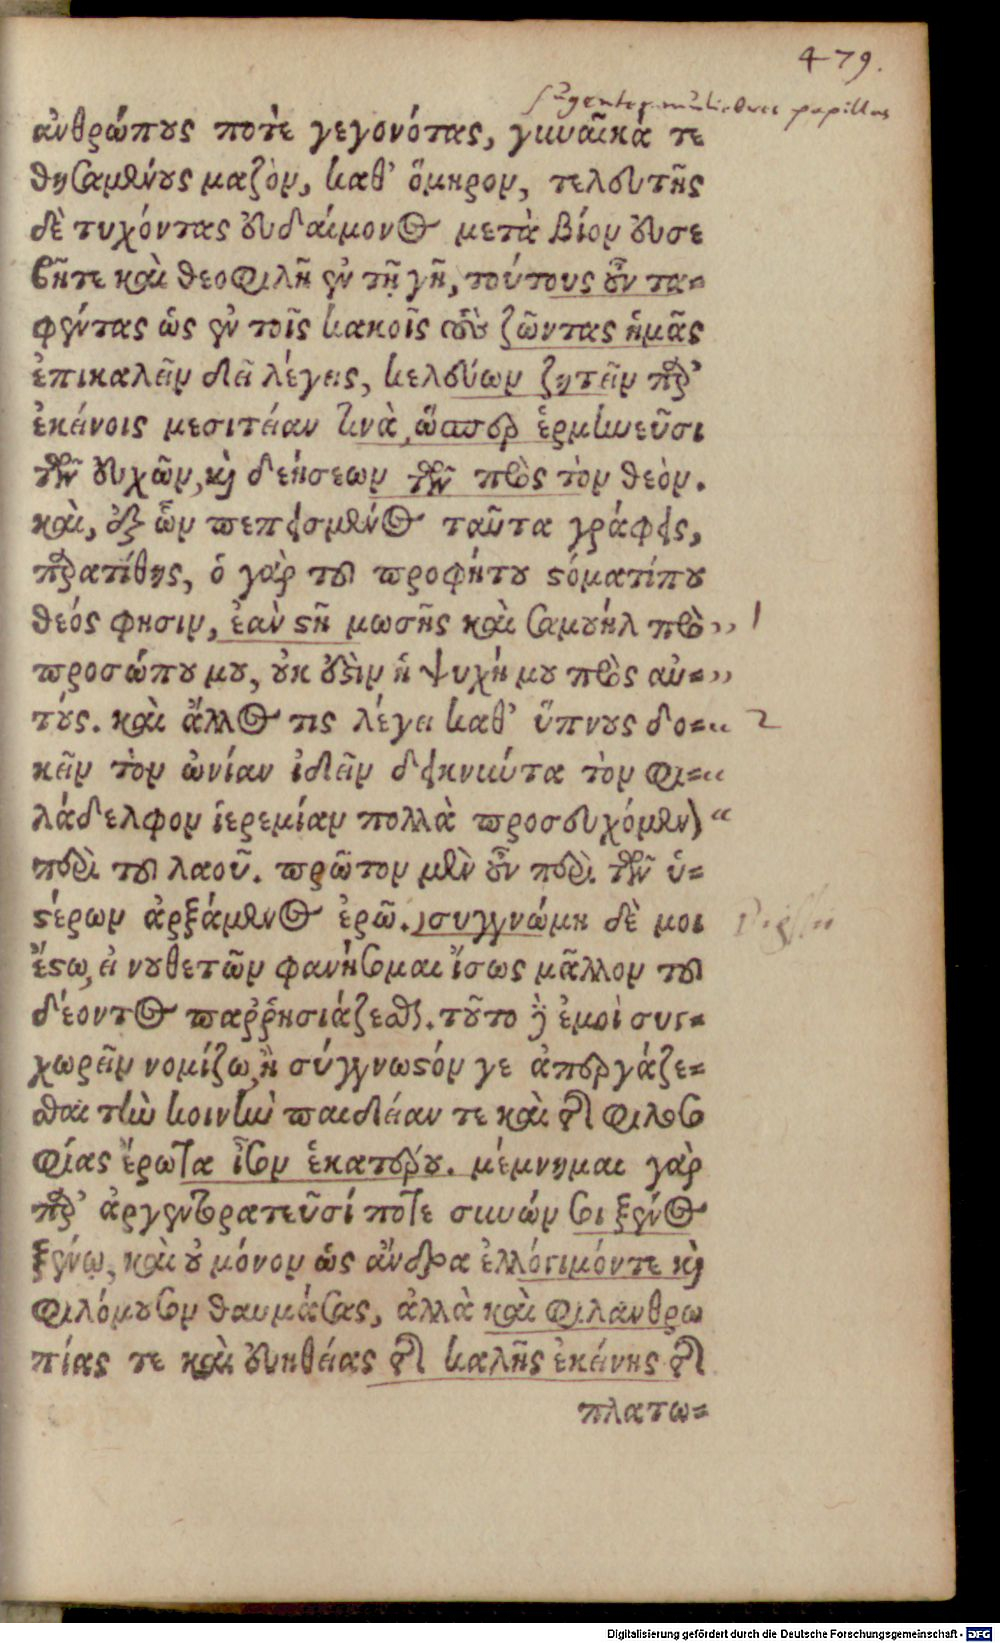 479.
sugentes muliebres papillas
ἀνθρώπους ποτὲ γεγονότας, γυναῖκά τε
θησαμένους μαζὸν, καθ' ὅμηρον, τελευτῆς
δὲ τυχόντας εὐδαίμονος μετὰ βίον εὐσε
βῆτε καὶ θεοφιλῆ ἐν τῇ γῇ, τούτους οὖν τα-
φέντας ὡς ἐν τοῖς κακοῖς ζῶντας ἡμᾶς
ἐπικαλεῖν δεῖ λέγεις, κελεύων ζητεῖν παρ'
ἐκείνοις μεσιτείαν τινὰ, ὥσπερ ἑρμηνεῦσι
τῶν εὐχῶν, καὶ δεήσεων τῶν πρὸς τὸν θεὸν.
καὶ, ἐξ ὧν πεπεισμένος ταῦτα γράφεις,
παρατίθης, ὁ γὰρ τοῦ προφήτου στόματίπου
θεός φησιν, ἐαν στῇ μωσῆς καὶ σαμουήλ πρὸ,, 1
προσώπου μου, οὐκ ἔστιν ἡ ψυχή μου πρὸς αὐ-,,
τούς. καὶ ἄλλος τις λέγει καθ' ὕπνους δο-“ 2
κεῖν τὸν ὠνίαν ἰδεῖν δεικνύντα τὸν φι-“
λάδελφον ἱερεμίαν πολλὰ προσευχόμενον “
περὶ τοῦ λαοῦ. πρῶτον μὲν οὖν περὶ τῶν ὑ-
στέρων ἀρξάμενος ἐρῶ. συγγνώμη δὲ μοι
ἔστω, εἰ νουθετῶν φανήσομαι ἴσως μᾶλλον τοῦ
δέοντος παῤῥησιάζεσθαι. τοῦτο γὰρ ἐμοὶ συγ-
χωρεῖν νομίζω, ἢ σύγγνωστόν γε ἀπεργάζε-
σθαι τὴν κοινὴν παιδείαν τε καὶ τῆς φιλοσο
φίας ἔρωτα ἶσον ἑκατέρου. μέμνημαι γὰρ
παρ' ἀργεντορατεῦσί ποτε συνών σοι ξένος
ξένῳ, καὶ οὐ μόνον ὡς ἄνδρα ἐλλόγιμόντε καὶ
φιλόμουσον θαυμάσας, ἀλλὰ καὶ φιλανθρω
πίας τε καὶ εὐηθείας τῆς καλῆς ἐκείνης τῆς
πλατω-
Digitalisierung gefördert durch die Deutsche Forschungsgemeinschaft - DFG